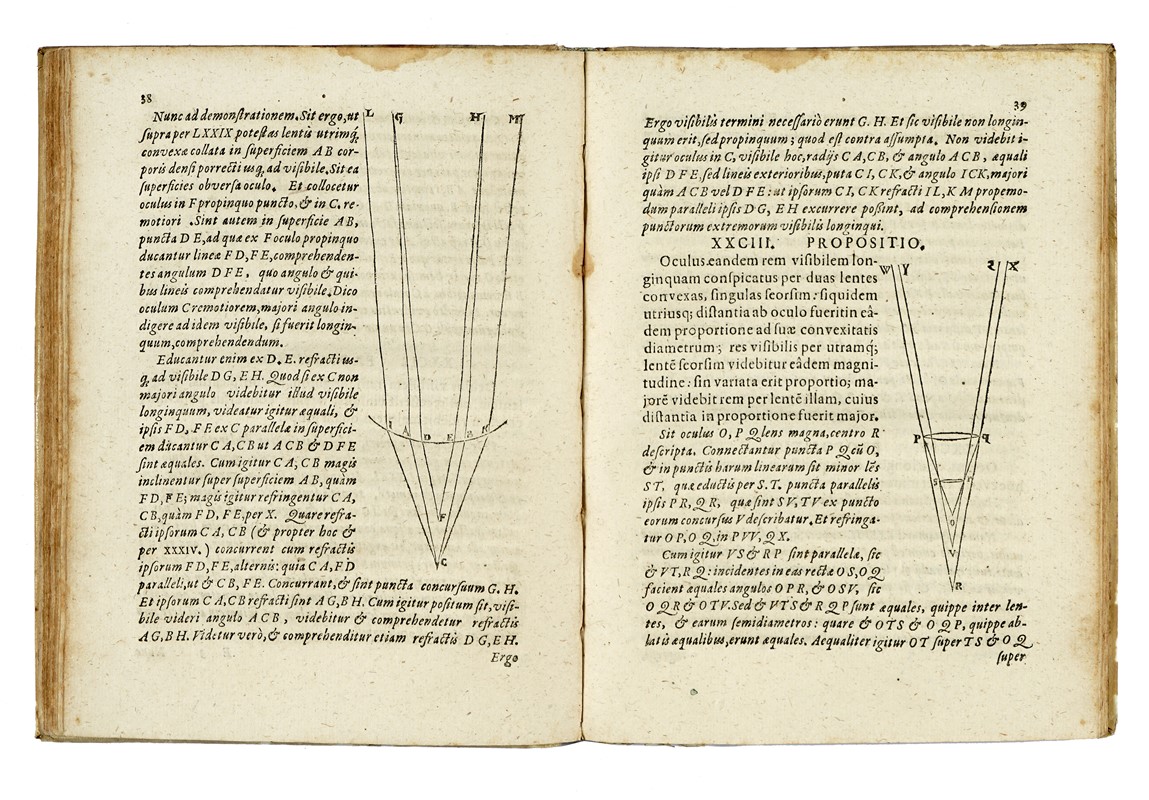 38
Nunc ad demonstrationem. Sit ergo, ut
supra per LXXIX potestas lentis utrimq́;
convexæ collata in superficiem A B cor-
poris densi porrecti usq, ad visibile. Sit ea
superficies obversa oculo. Et collocetur
oculus in F propinquo puncto, & in C. re-
motiori . Sint autem in superficie A B,
puncta D E, ad quæ ex F oculo propinquo
ducantur lineæ F D, F E, comprehenden-
tes angulum D F E, quo angulo & qui-
bus lineis comprehendatur visibile. Dico
oculum C remotiorem, majori angulo in-
digere ad idem visibile, si fuerit longin-
quum, comprehendendum.
Educantur enim ex D. E. refracti us-
q, ad visibile D G, E H. Quod si ex C non
majori angulo videbitur illud visibile
longinquum, videatur igitur æquali, &
ipsis F D, F E ex C parallelæ in superfici-
em ducantur C A, C B ut A C B & D F E
sint æquales. Cum igitur C A, C B magis
inclinentur super superficiem A B, quàm
F D, F E; magis igitur refringentur C A,
C B, quàm F D, F E, per X. Quare refra-
cti ipsorum C A, C B (& propter hoc &
per XXXIV.) concurrent cum refractis
ipsorum F D, F E, alternis: quia C A, F D
paralleli, ut & C B, F E. Concurrant, & sint puncta concursuum G. H.
Et ipsorum C A, C B refracti sint A G, B H. Cum igitur positum sit, visi-
bile videri angulo A C B, videbitur & comprehendetur refractis
A G, B H. Videtur verò, & comprehenditur etiam refractis D G, E H.
Ergo
L G H M
I A D E B K
F
C
39
Ergo visibilis termini necessariò erunt G. H. Et sic visibile non longin-
quum erit, sed propinquum; quod est contra assumpta. Non videbit i-
gitur oculus in C, visibile hoc, radijs C A, C B, & angulo A C B, æquali
ipsi D F E, sed lineis exterioribus, puta C I, C K, & angulo I C K, majori
quàm A C B vel D F E: ut ipsorum C I, C K refracti I L, K M propemo-
dum paralleli ipsis D G, E H excurrere possint, ad comprehensionem
punctorum extremorum visibilis longinqui.
XXCIII. PROPOSITIO.
Oculus eandem rem visibilem lon-
ginquam conspicatus per duas lentes
convexas, singulas seorsim: siquidem
utriusq; distantia ab oculo fuerit in eâ-
dem proportione ad suæ convexitatis
diametrum; res visibilis per utramq;
lentē seorsim videbitur eâdem magni-
tudine: sin variata erit proportio; ma-
jorē videbit rem per lentē illam, cuius
distantia in proportione fuerit major.
Sit oculus O, P Q lens magna, centro R
descripta. Connectantur puncta P Q cū O,
& in punctis harum linearum sit minor lēs
S T, quæ eductis per S. T. puncta parallelis
ipsis P R, Q R, quæ sint S V, T V ex puncto
eorum concursus V describatur. Et refringa-
tur O P, O Q in P VV, Q X.
Cum igitur V S & R P sint parallelæ, sic
& V T, R Q: incidentes in eas rectæ O S, O Q
facient æquales angulos O P R, & O S V, sic
O Q R & O T V. Sed & V T S & R Q P sunt æquales, quippe inter len-
tes, & earum semidiametros: quare & O T S & O Q P, quippe ab-
latis æqualibus, erunt æquales. Aequaliter igitur O T super T S & O Q
super
W Y Z X
P q
S T
O
V
R